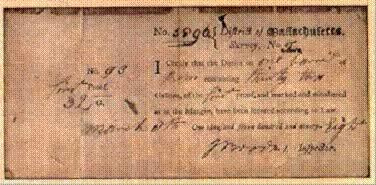 No. 5896 District of Massachusetts.
Survey, No.
No. 93
I Certify that the Duties on one
Rum containing Thirty two
first Proof
Gallons, of the first proof, and marked and numbered
32 G.
as in the Margin, have been secured according to Law.
March 8th One thousand seven hundred and ninety eight
Inspector.